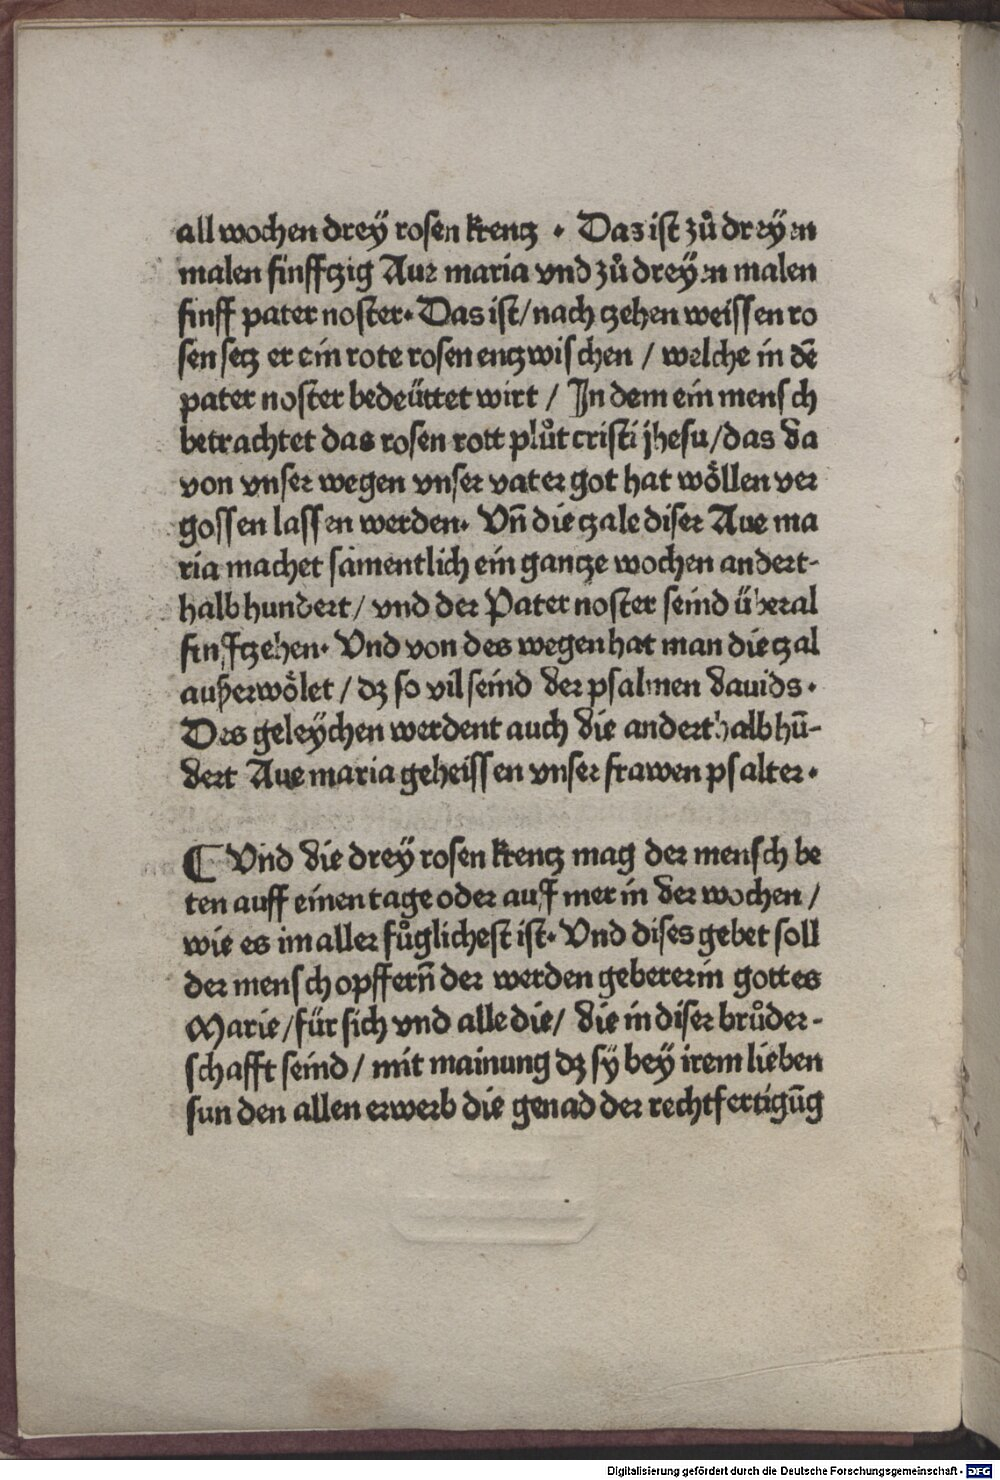 all wochen drey̋ rosen krentz · Das ist zů drey̋en
malen finfftzig Aue maria vnd zů drey̋en malen
finff pater noster· Das ist/ nach tzehen weissen ro
sen setz er ein rote rosen entzwischen / welche in dē
pater noster bedeüttet wirt / In dem ein mensch
betrachtet das rosen rott plůt cristi jhesu/das da
von vnser wegen vnser vater got hat wöllen ver
gossen lassen werden· Vn̄ die tzale diser Aue ma
ria machet samentlich ein gantze wochen andert-
halb hundert/ vnd der Pater noster seind überal
finfftzehen· Vnd von des wegen hat man die tzal
außerwölet / dz so vil seind der psalmen dauids·
Des geley̋chen werdent auch die anderthalb hū-
dert Aue maria geheissen vnser frawen psalter·
¶ Vnd die drey̋ rosen krentz mag der mensch be
ten auff einen tage oder auff mer in der wochen /
wie es im aller fůglichest ist· Vnd dises gebet soll
der mensch opffern̄ der werden gebererin gottes
Marie/für sich vnd alle die/ die in diser brůder-
schafft seind / mit mainung dz sy̋ bey̋ irem lieben
sun den allen erwerb die genad der rechtfertigūg
Digitalisierung gefördert durch die Deutsche Forschungsgemeinschaft - DFG